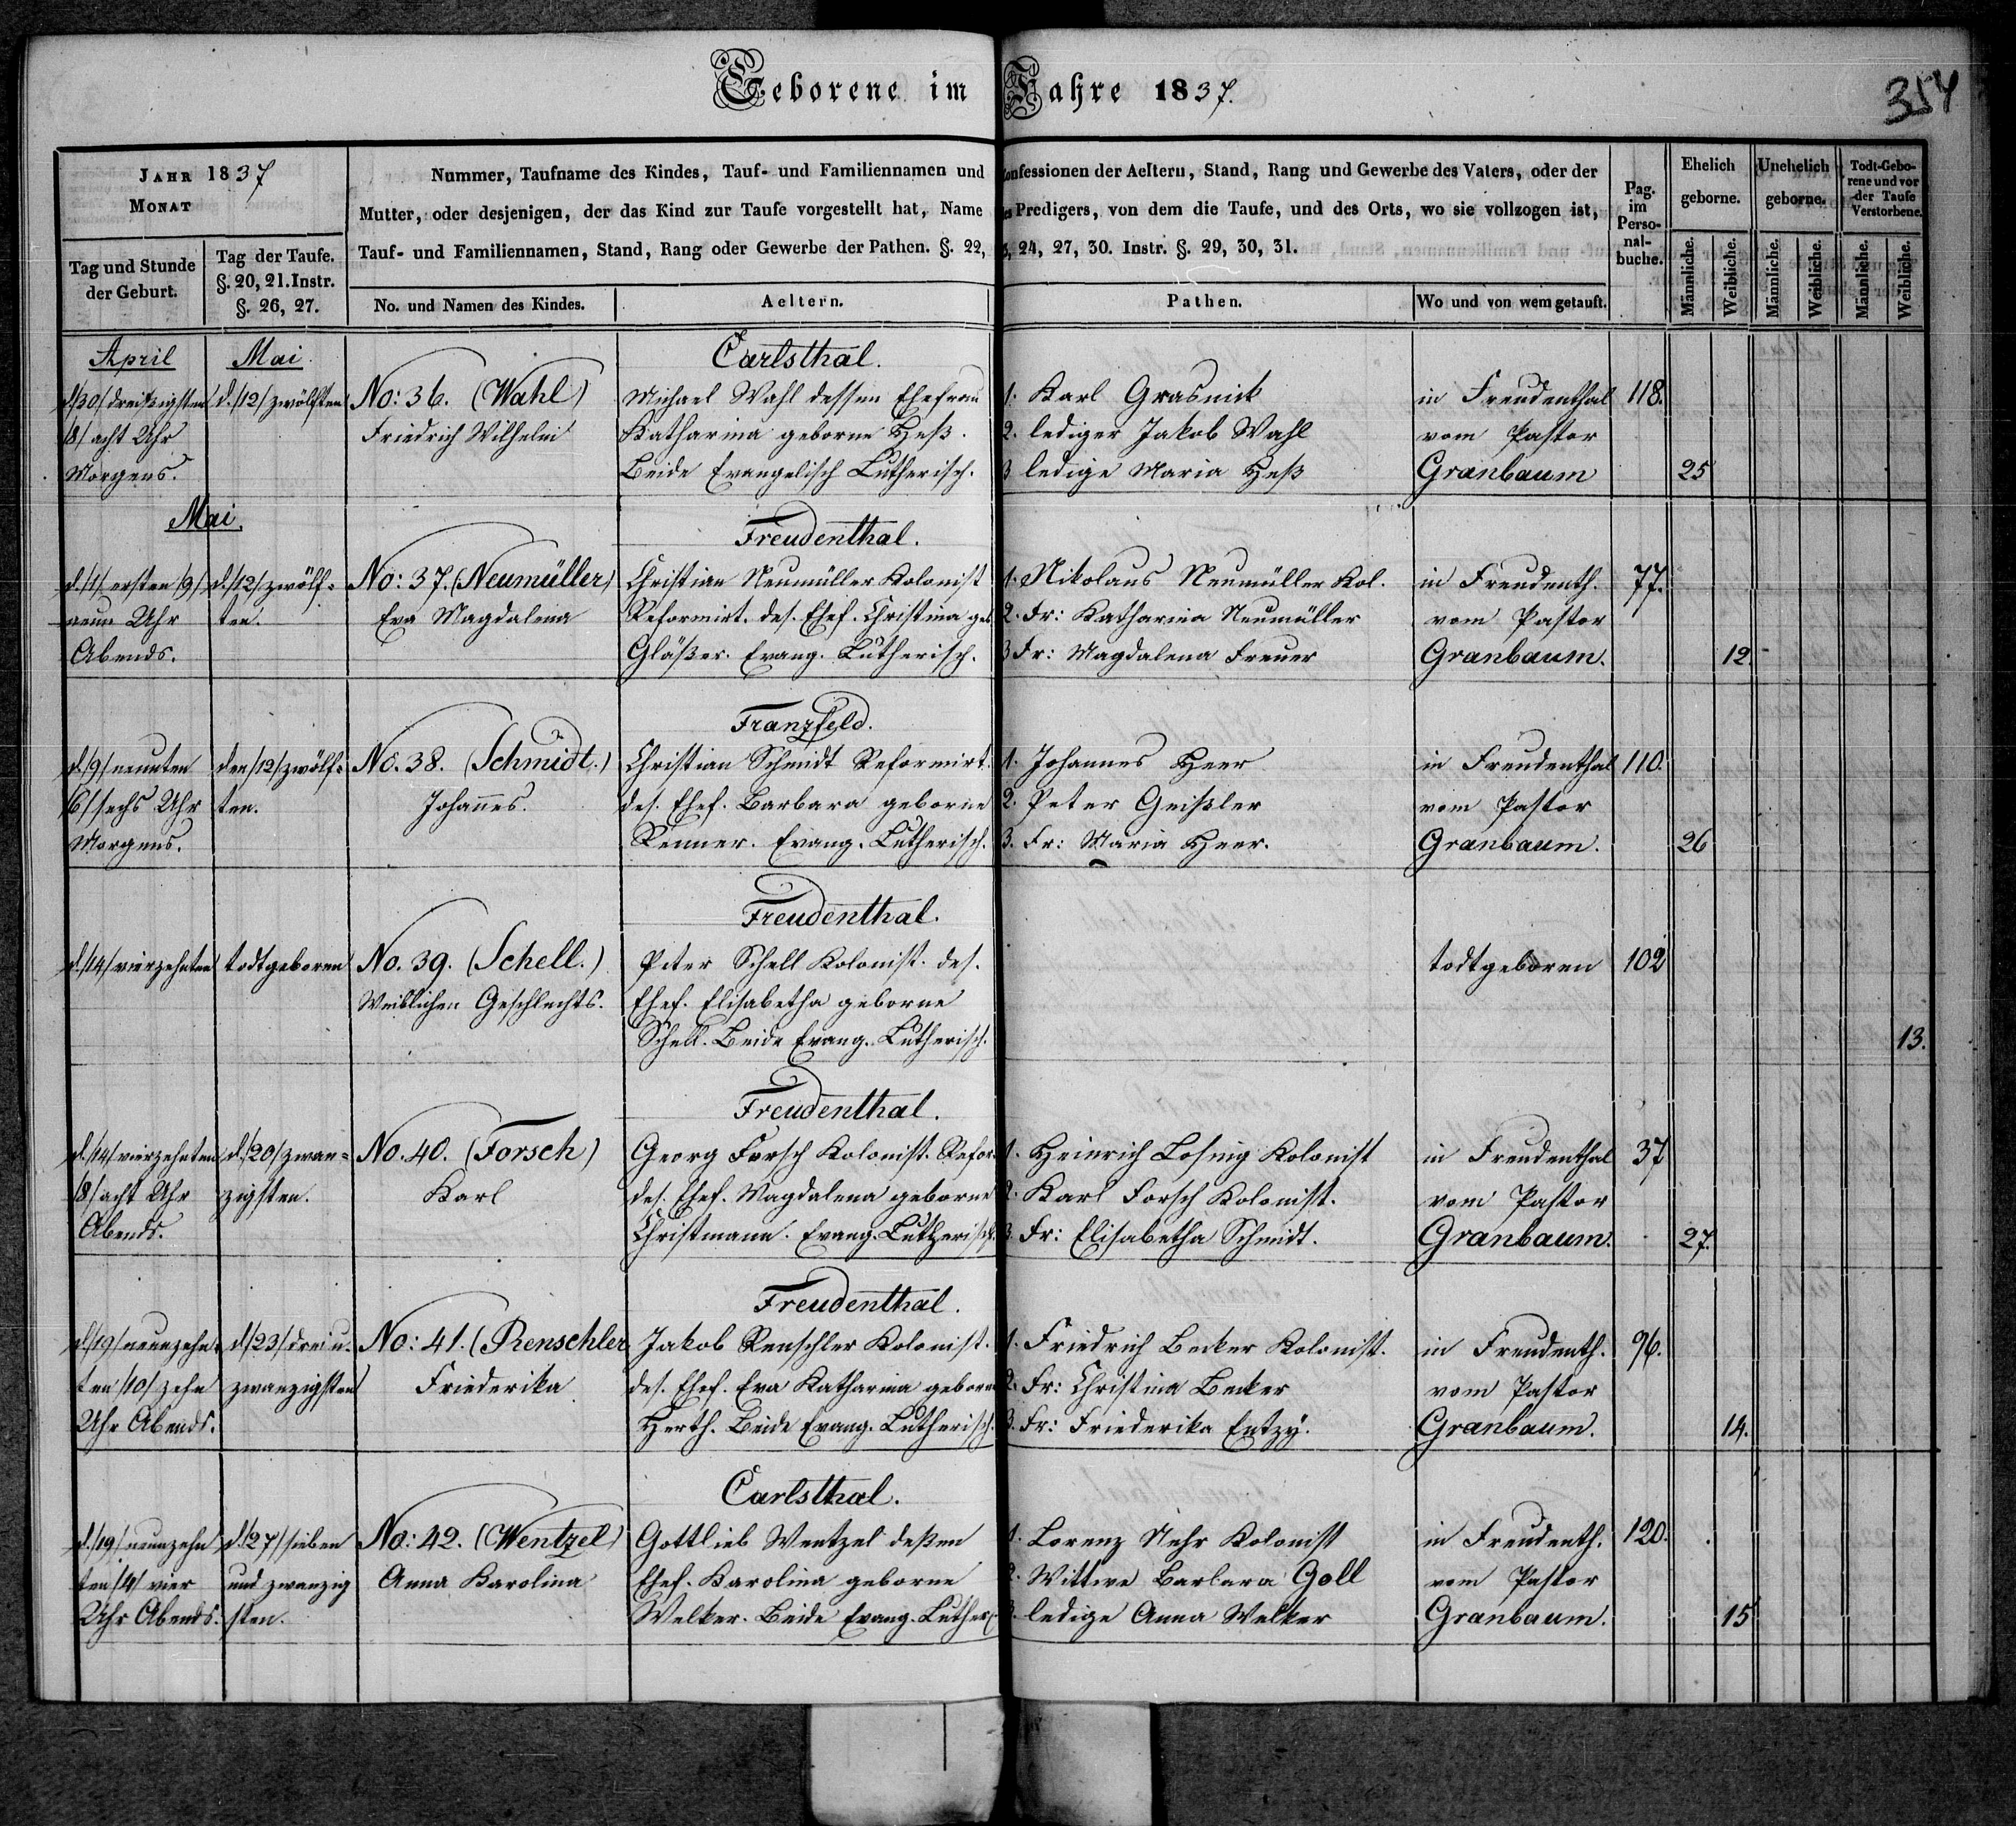 Geborene im Jahre 1837.
354
JAHR 1837
MONAT
Tag und Stunde der Geburt.
Tag der Taufe. §. 20, 21. Instr. §. 26, 27.
Nummer, Taufname des Kindes, Tauf- und Familiennamen und Confessionen der Aeltern, Stand, Rang und Gewerbe des Vaters, oder der
Mutter, oder desjenigen, der das Kind zur Taufe vorgestellt hat, Name des Predigers, von dem die Taufe, und des Orts, wo sie vollzogen ist,
Tauf- und Familiennamen, Stand, Rang oder Gewerbe der Pathen. §. 22, 23, 24, 27, 30. Instr. §. 29, 30, 31.
No. und Namen des Kindes.
Aeltern.
Pathen.
Wo und von wem getauft.
Pag. im Perso-nal-buche.
Ehelich geborne.
Unehelich geborne.
Todt-Gebo-rene und vor der Taufe Verstorbene.
Männliche. Weibliche. Männliche. Weibliche. Männliche. Weibliche.
April
Mai.
Carlsthal.
d./30/ dreißigsten d./12/ zwölften No: 36. (Wahl) Michael Wahl dessen Ehefrau 1. Karl Grasnick in Freudenthal 118.
/8/ acht Uhr Friedrich Wilhelm Katharina geborne Heß. 2. lediger Jakob Wahl vom Pastor
Morgens. Beide Evangelisch Lutherisch. 3 ledige Maria Heß Granbaum 25
Mai.
Freudenthal.
d./1/ ersten /9/ d./12/ zwölf- No: 37. (Neumüller) Christian Neumüller Kolonist 1. Nikolaus Neumüller Kol. in Freudenth. 77.
neun Uhr ten. Eva Magdalena Reformirt. des. Ehef. Christina geb. 2. Fr: Katharina Neumüller vom Pastor
Abends. Gläßer. Evang. Lutherisch. 3 Fr: Magdalena Freuer Granbaum. 12.
Franzfeld.
d./9/ neunten den /12/ zwölf- No. 38. (Schmidt.) Christian Schmidt Reformirt. 1. Johannes Heer in Freudenthal 110.
/6/ sechs Uhr ten. Johannes. des. Ehef. Barbara geborne 2. Peter Geißler vom Pastor
Morgens. Renner. Evang. Lutherisch. 3. Fr: Maria Heer. Granbaum. 26
Freudenthal.
d./14/ vierzehnten todtgeboren No. 39. (Schell.) Peter Schell Kolonist. des. todtgeboren 102
Weiblichen Geschlechts. Ehef. Elisabetha geborne
Schell. Beide Evang. Lutherisch. 13.
Freudenthal.
d./14/ vierzehnten d./20/ zwan- No. 40. (Forsch) Georg Forsch Kolonist. Refor. 1. Heinrich Losing Kolonist in Freudenthal 37
/8/ acht Uhr zigsten. Karl des. Ehef. Magdalena geborne 2. Karl Forsch Kolonist. vom Pastor
Abends. Christmann. Evang. Lutherisch. 3. Fr: Elisabetha Schmidt. Granbaum. 27.
Freudenthal.
d./19/ neunzehn- d./23/ drei u. No: 41. (Renschler Jakob Renschler Kolonist. 1. Friedrich Becker Kolonist. in Freudenth. 96.
ten /10/ zehn zwanzigsten Friederika des. Ehef. Eva Katharina geborne 2. Fr: Christina Becker vom Pastor
Uhr Abends. Herth. Beide Evang. Lutherisch. 3. Fr: Friederika Entzy. Granbaum. 14.
Carlsthal.
d./19/ neunzehn d./27/ sieben No: 42. (Wentzel) Gottlieb Wentzel deßen 1. Lorenz Nehr Kolonist in Freudenth. 120.
ten /4/ vier und zwanzig Anna Karolina Ehef. Karolina geborne 2. Wittwe Barbara Goll vom Pastor
Uhr Abends. sten. Welker. Beide Evang. Luther. 3. ledige Anna Welker Granbaum. 15